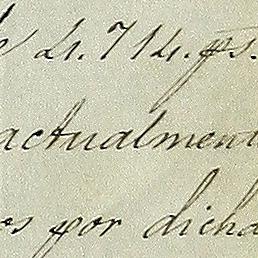 4.714.ps.
actualment
os por dicha